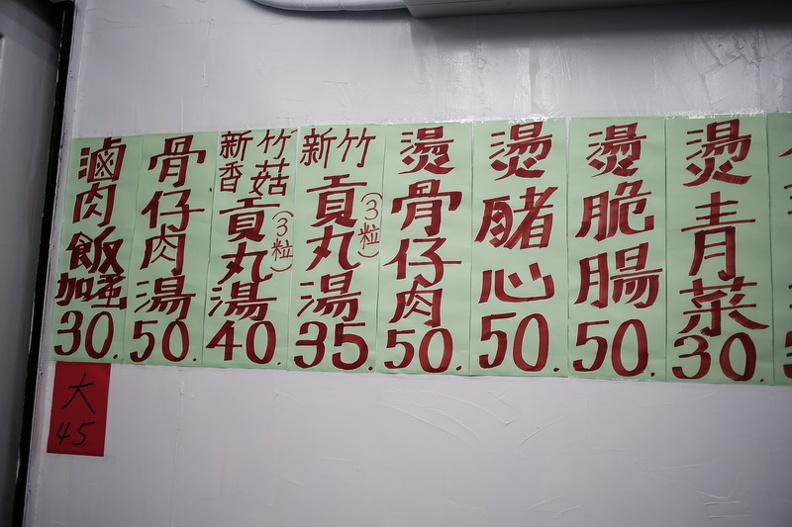 滷肉飯
30.
大
45
骨仔肉湯
50.
新竹
香菇
貢丸湯
(3粒)
40.
新竹
貢丸湯
(3粒)
35.
燙骨仔肉
50.
燙䐗心
50.
燙脆腸
50.
燙青菜
30.